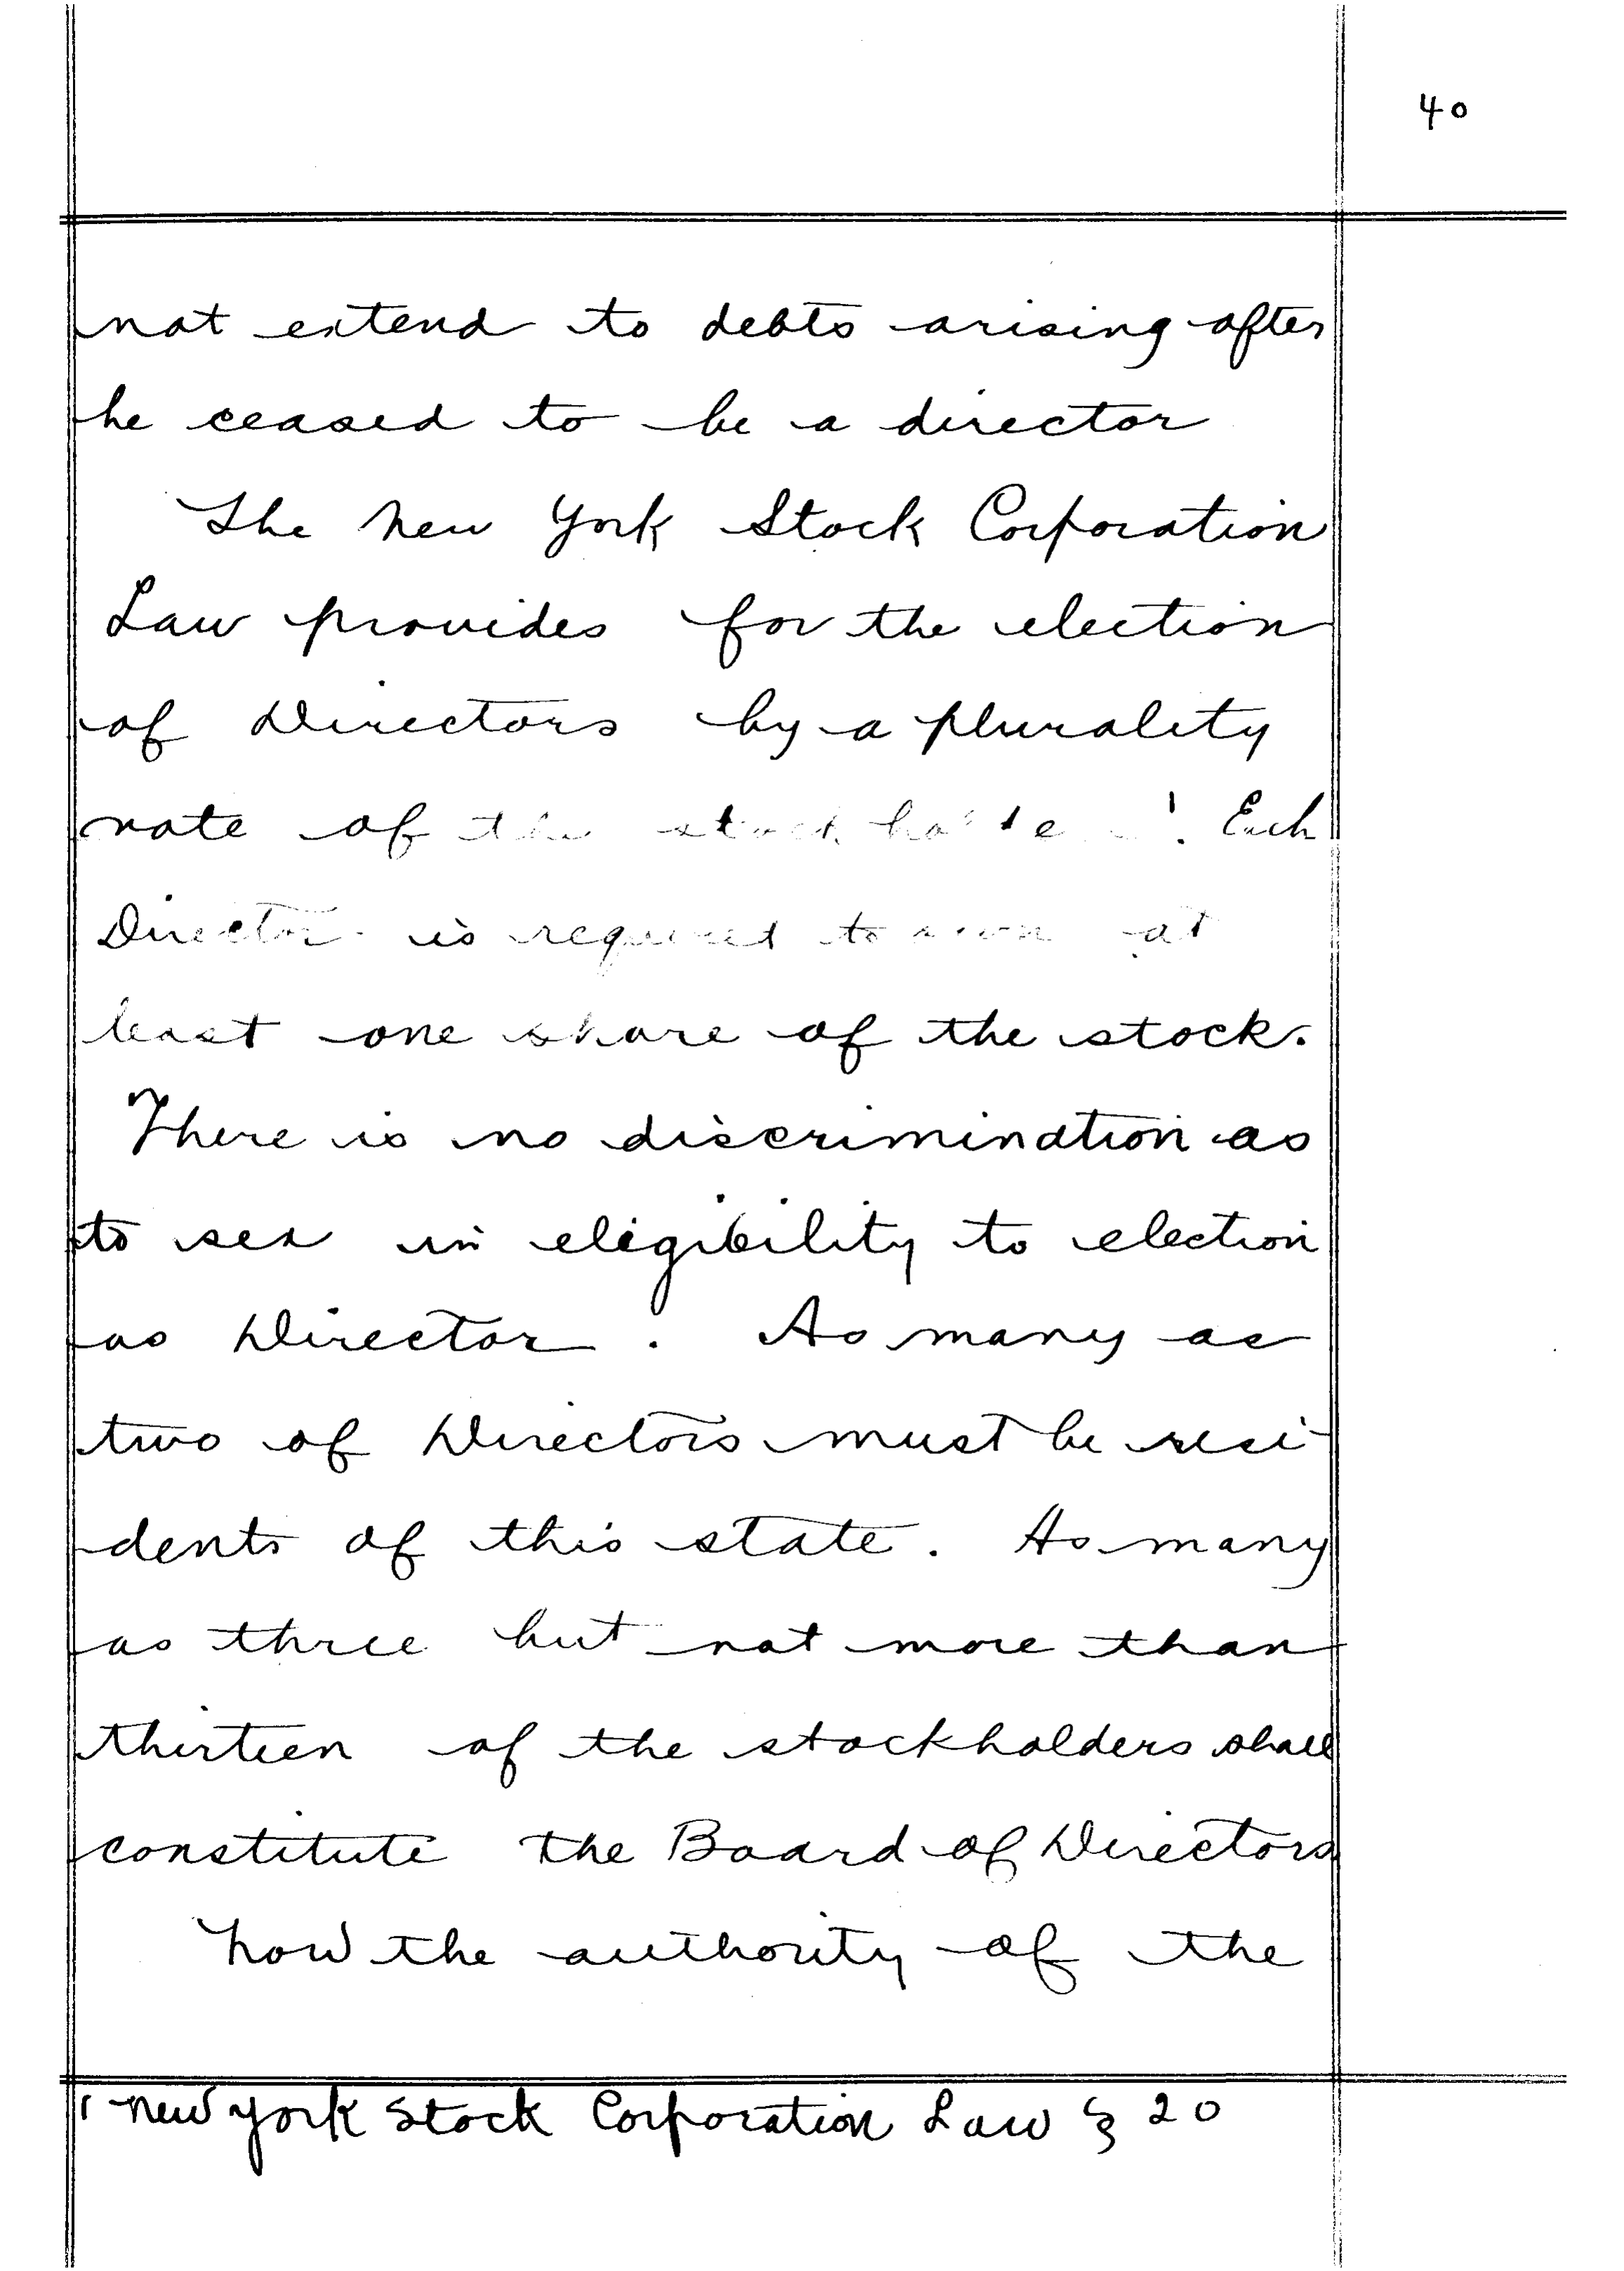 40
not extend to debts arising after
he ceased to be a director
The New York Stock Corporation
Law provides for the election
of Directors by a plurality
vote of the stockholders¹. Each
Director is required to own at
least one share of the stock.
There is no discrimination as
to sex in eligibility to election
as Director. As many as
two of Directors must be resi-
dents of this state. As many
as three but not more than
thirteen of the stockholders shall
constitute the Board of Directors
Now the authority of the
1 New York Stock Corporation Law § 20